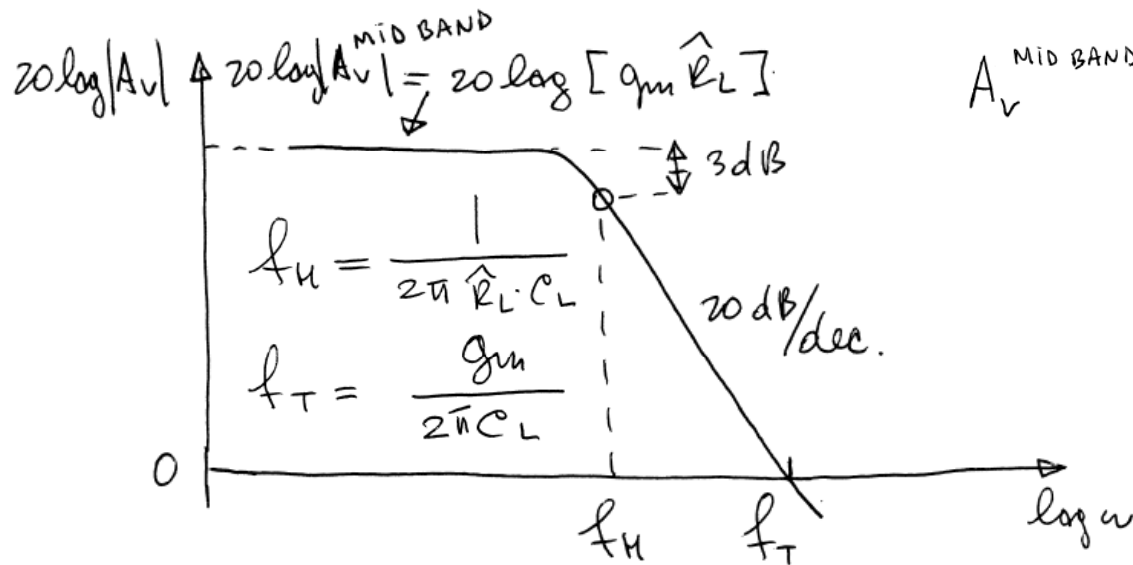 20log|Av| 20log|Av^MID BAND| = 20 log [gm R̂_L]
A_v^MID BAND
3dB
f_H = 1 / (2π R̂_L · C_L)
20 dB/dec.
f_T = gm / (2π C_L)
0
f_H f_T log ω